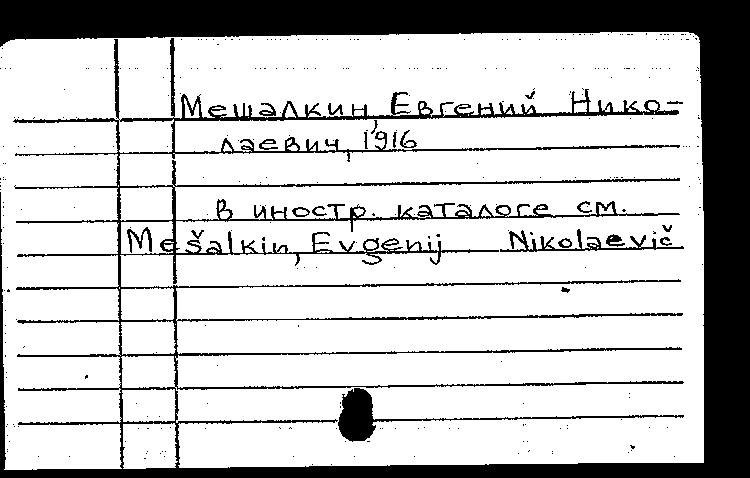 Мешалкин, Евгений Нико-
лаевич, 1916
В иностр. каталоге см.
Mešalkin, Evgenij Nikolaevič